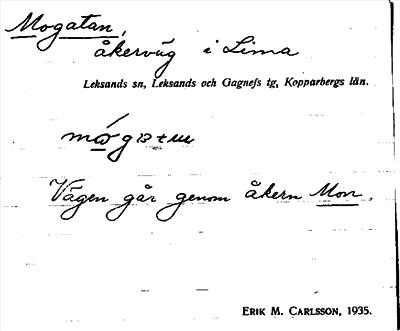 Mogatan,
åkerväg i Lima
Leksands sn, Leksands och Gagnefs tg, Kopparbergs län.
Vägen går genom åkern Mon.
ERIK M. CARLSSON, 1935.